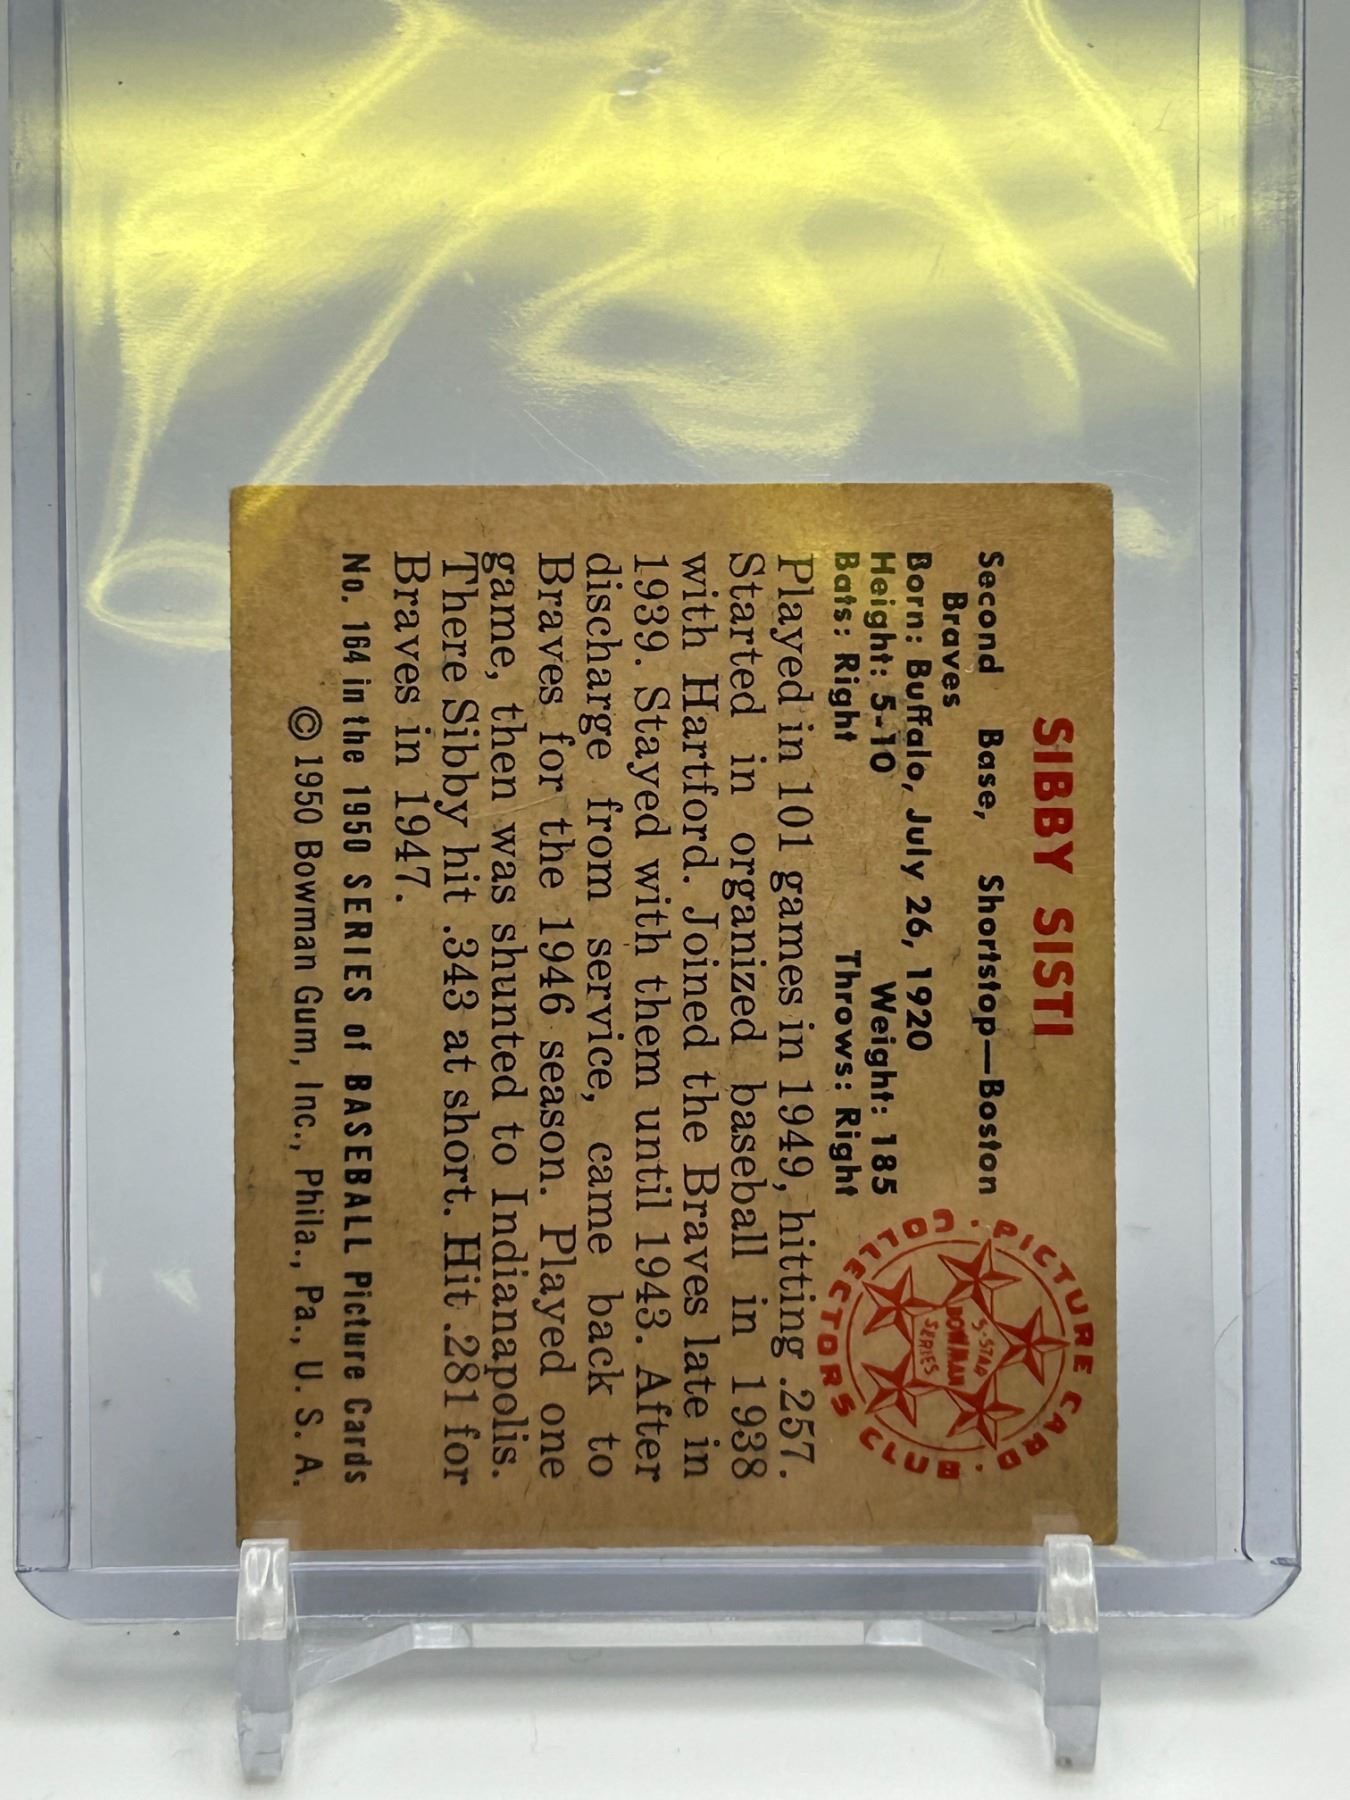 SIBBY SISTI
Second Base, Shortstop—Boston
Braves
Born: Buffalo, July 26, 1920
Height: 5-10 Weight: 185
Bats: Right Throws: Right
Played in 101 games in 1949, hitting .257.
Started in organized baseball in 1938
with Hartford. Joined the Braves late in
1939. Stayed with them until 1943. After
discharge from service, came back to
Braves for the 1946 season. Played one
game, then was shunted to Indianapolis.
There Sibby hit .343 at short. Hit .281 for
Braves in 1947.
No. 164 in the 1950 SERIES of BASEBALL Picture Cards
© 1950 Bowman Gum, Inc., Phila., Pa., U. S. A.
PICTURE CARD COLLECTORS CLUB
5-STAR
BOWMAN
SERIES